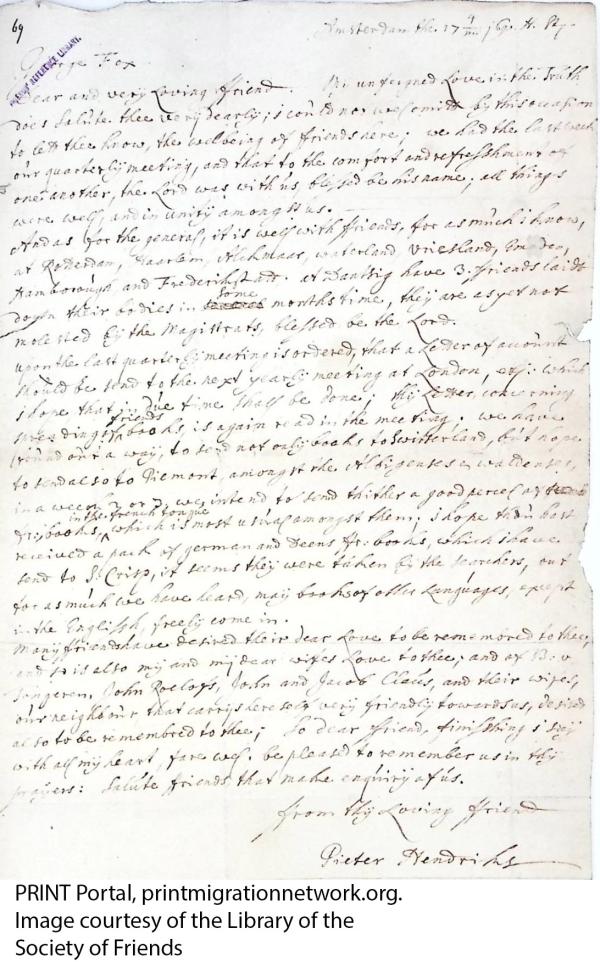 69
Amsterdam the 17
George Fox
Dear and very Loving ffriend. My unfeigned Love in the Truth
does Salute thee very dearly; i could not wel omitt by this occasion
to lett thee know, the wel being of ffriends here; we had the last week
our quarterly meeting, and that to the comfort and refreshment of
one another, the Lord was with us, blessed be his name; all things
were well, and in unity amongst us.
And as for the general, it is wel with ffriends, for as much i know,
at Rotterdam, Haarlem, Alckmaar, waterland, vriesland, Emden,
Hamborough and Frederickstadt. at Dantsig have 3. ffriends laide
down their bodies in some months time, they are as yet not
molested by the Magistrats, blessed be the Lord.
upon the last quarterly meeting is ordered, that a Letter of account
should be send to the next yearly meeting at London, etc: which
i hope that in due time shall be done; thy Letter, concerning
spreading of friends books is again read in the meeting. we have
found out a way, to send not only books to Switserland, but hope
to send also to Piemont, amongst the Albigenses & waldenses,
in a week 2 or 3, we intend to send thither a good percel of
fr: books, in the french tongue which is most usual amongst them; i hope thou hast
received a pack of german and Deens fr: books, which i have
send to S: Crisp, it seems they were taken by the searchers, but
for as much we have heard, may books of other Languages, except
in the English, freely come in.
Many ffriends have desired their dear Love to be remembred to thee,
and so is also my and my dear wifes Love to thee; and of B: v
Tongeren, John Roeloffs, John and Jacob Claus, and their wifes,
our neighbour that carrys herself very friendly towards us, desired
also to be remembred to thee; So dear ffriend, finisshing i say
with all my heart, fare wel. be pleased to remember us in thy
prayers: Salute ffriends that make enquiry of us.
from thy Loving ffriend
Pieter Hendricks
PRINT Portal, printmigrationnetwork.org.
Image courtesy of the Library of the
Society of Friends